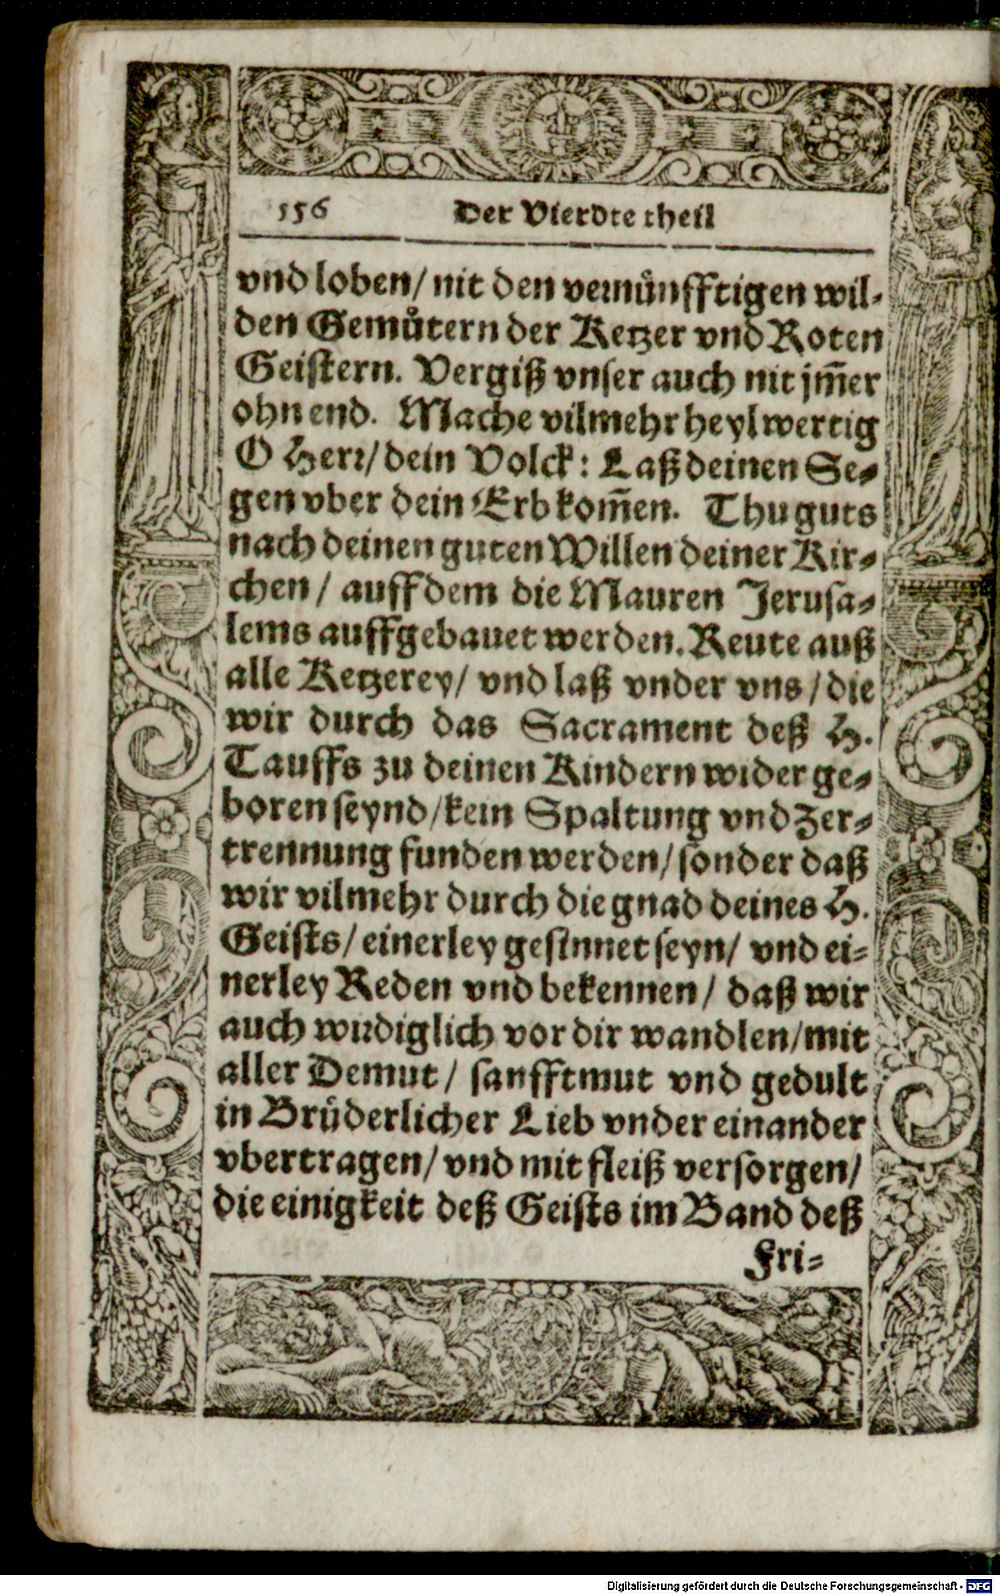 156 Der Vierdte theil
vnd loben/ nit den vernuͤnfftigen wil⸗
den Gemuͤtern der Ketzer vnd Roten
Geistern. Vergiß vnser auch nit jm̃er
ohn end. Mache vilmehr heylwertig
O Herr/ dein Volck: Laß deinen Se⸗
gen vber dein Erb kom̃en. Thu guts
nach deinen guten Willen deiner Kir⸗
chen/ auff dem die Mauren Jerusa⸗
lems auffgebauet werden. Reute auß
alle Ketzerey/ vnd laß vnder vns/ die
wir durch das Sacrament deß H.
Tauffs zu deinen Kindern wider ge⸗
boren seynd/ kein Spaltung vnd Zer⸗
trennung funden werden/ sonder daß
wir vilmehr durch die gnad deines H.
Geists/ einerley gesinnet seyn/ vnd ei⸗
nerley Reden vnd bekennen/ daß wir
auch wirdiglich vor dir wandlen/ mit
aller Demut/ sanfftmut vnd gedult
in Bruͤderlicher Lieb vnder einander
vbertragen/ vnd mit fleiß versorgen/
die einigkeit deß Geists im Band deß
Fri⸗
Digitalisierung gefördert durch die Deutsche Forschungsgemeinschaft - DFG